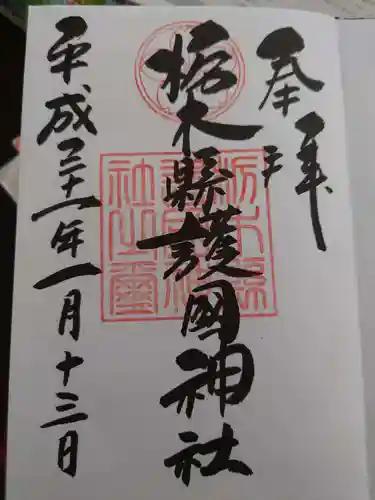 奉拝
栃木縣護國神社
平成三十一年一月十三日
栃木縣護國神社之璽